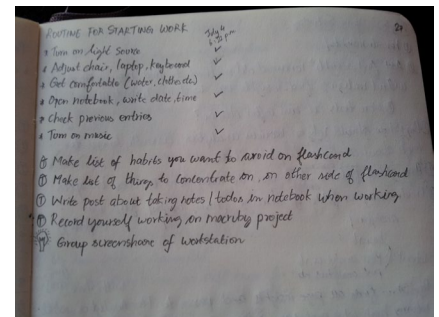 ROUTINE FOR STARTING WORK
July 6
Turn on light source ✓
Adjust chair, laptop, keyboard ✓
Get comfortable (water, clothes etc) ✓
Open notebook, write date, time ✓
Check previous entries ✓
Turn on music ✓
Make list of habits you want to avoid on flashcard
Make list of things to concentrate on, on other side of flashcard
Write post about taking notes / todos in notebook when working
Record yourself working on project
Group screenshare of workstation